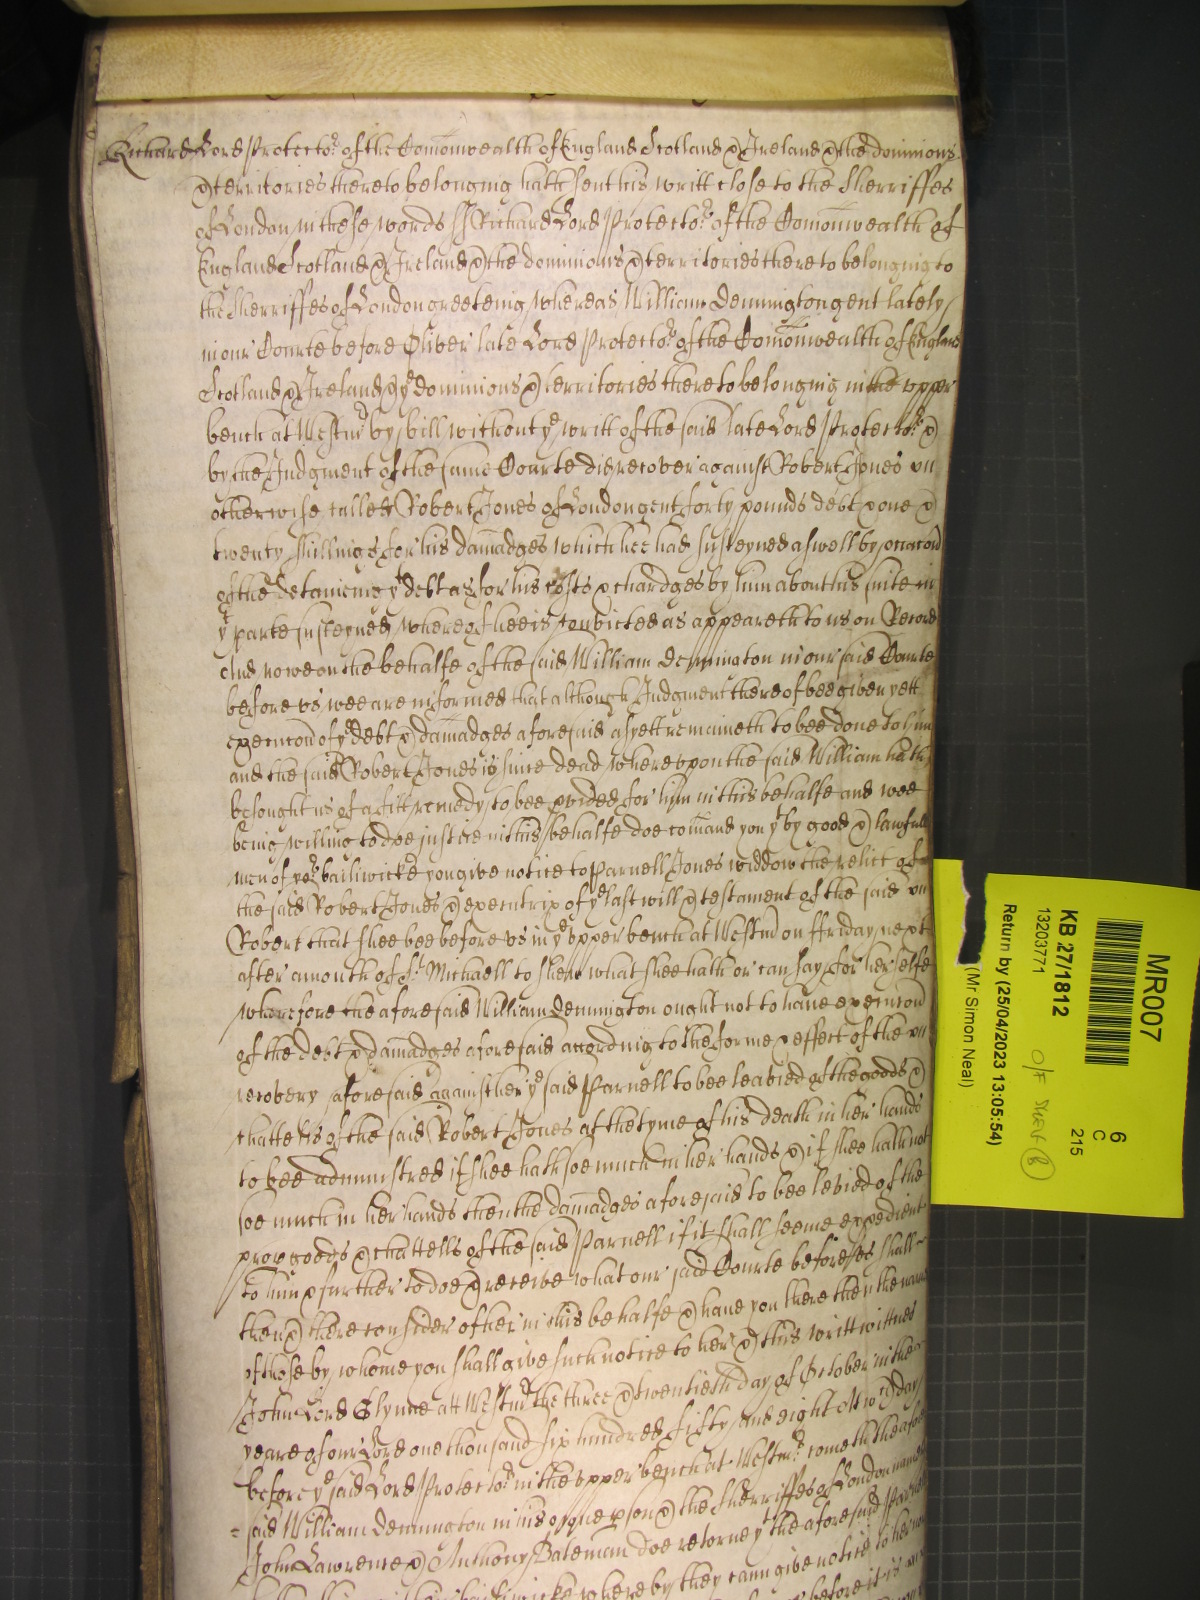 Richard Lord Protector of the Comonwealth of England Scotland & Ireland & the dominions
& territories thereto belonging hath sent his writt close to the Sherriffes
of London in these words ss Richard Lord Protector of the Comonwealth of
England Scotland & Ireland & the dominions & territories thereto belonging to
the Sherriffes of London greeteing whereas William Dennington gent lately
in our Courte before Oliver late Lord Protector of the Comonwealth of England
Scotland & Ireland & ye dominions & territories thereto belonging in the upper
bench at Westmr by bill without ye writt of the said late Lord Protector &
by the Judgment of the same Courte did recover against Robert Jones
otherwise called Robert Jones of London gent forty pounds debt & one &
twenty shillings for his damadges which hee had susteyned aswell by occacon
of the detaineing yt debt as for his costs & chardges by him about his suite in
yt parte susteyned whereof hee is convicted as appeareth to us on Record
And nowe on the behalfe of the said William Dennington in our said Courte
before us wee are informed that although Judgment thereof bee given yett
execucon of ye debt & damadges aforesaid as yett remaineth to bee done to him
and the said Robert Jones is since dead whereupon the said William hath
besought us of a fitt remedy to bee pvided for him in this behalfe and wee
being willing to doe justice in this behalfe doe comand you yt by good & lawfull
men of yor bailiwicke you give notice to Parnell Jones widdow the relict of
the said Robert Jones & executrix of ye last will & testament of the said
Robert that shee bee before us in ye upper bench at Westmr on ffriday next
after a month of St Michaell to shew what shee hath or can say for herselfe
wherefore the aforesaid William Dennington ought not to have execucon
of the debt & damadges aforesaid according to the forme & effect of the
recovery aforesaid against her ye said Parnell to bee leavied of the goods &
chattells of the said Robert Jones at the tyme of his death in her hands
to bee administred if shee hath soe much in her hands & if shee hath not
soe much in her hands then the damadges aforesaid to bee levied of the
prop goods & chattells of the said Parnell if it shall seeme expedient
to him & further to doe & receive what our said Courte before us shall
then & there consider of her in this behalfe & have you there then the names
of those by whome you shall give such notice to her & this writt wittnes
John Lord Glynne att Westmr the three & twentieth day of October in the
yeare of our Lord one thousand six hundred fifty and eight At wch day
before ye said Lord Protector in the upper bench at Westmr cometh the afore
said William Dennington in his ppne pson & the Sherriffes of London namely
John Lawrence & Anthony Bateman doe retorne yt the aforesaid Parnell
bailiwicke whereby they cann give notice to her
before it is
MR007
6
C
215
KB 27/1812
13203771
O/F
Return by (25/04/2023 13:05:54)
(Mr Simon Neal)